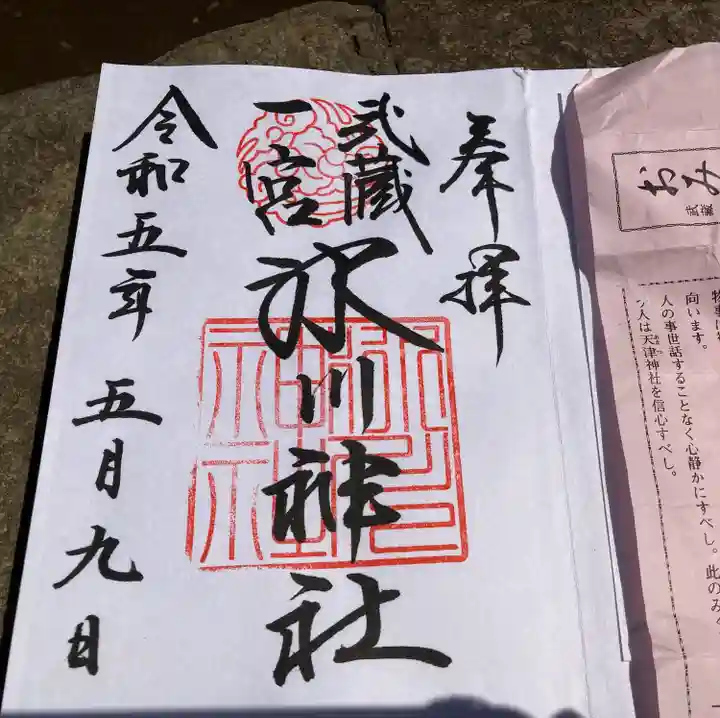 おみ
武蔵
向います。
人の事世話することなく心静かにすべし。此のみ
人は天津神社を信心すべし。
奉拝
武蔵
一宮
氷川神社
氷川神社
令和五年 五月九日